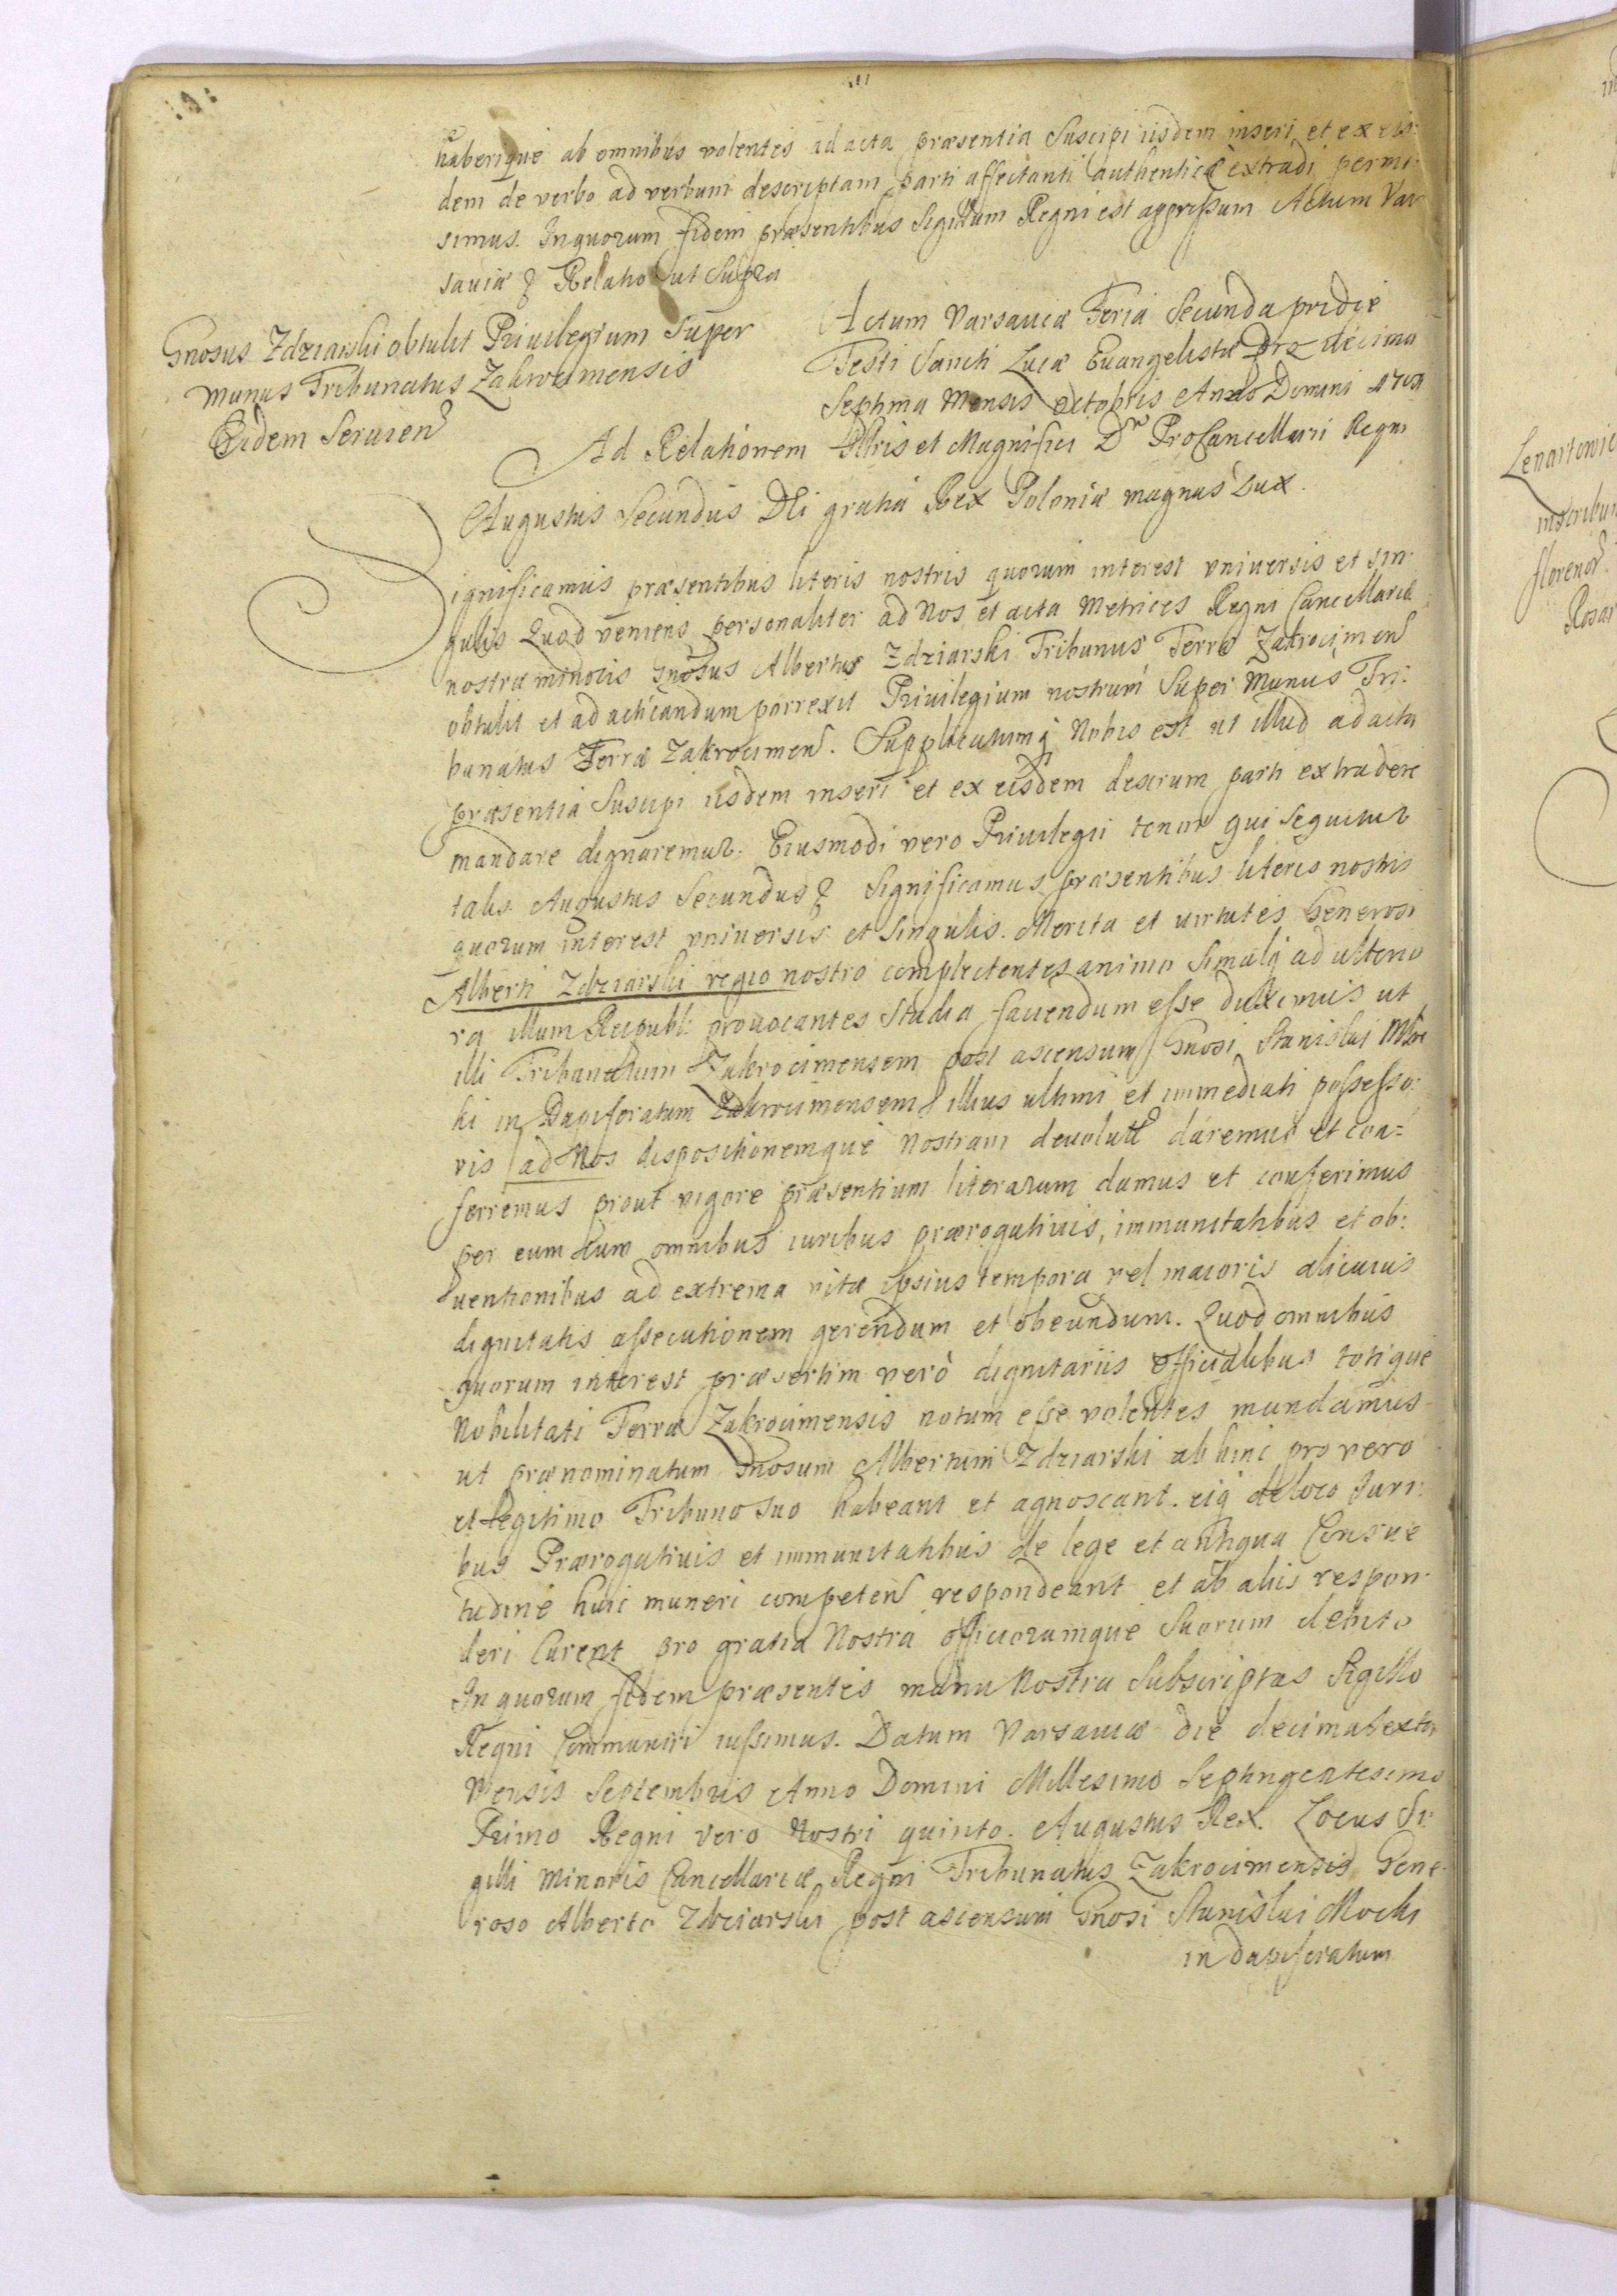 haberique ab omnibus volentes ad acta præsentia Suscipi iisdem inseri et ex eis:
dem de verbo ad verbum descriptam parti affectanti authentice extradi permi:
simus. In quorum fidem præsentibus Sigillum Regni est appressum Actum Var
saviæ & Relatio ut Supra
Gnosus Zdziarski obtulit Privilegium Super
munus Tribunatus Zakrocimensis
Eidem Servien
Actum Varsaviæ Feria Secunda pridie
Festi Sancti Lucæ Evangelistæ Die decima
Septima Mensis Octobris Anno Domini 1701
Ad Relationem Illris et Magnifici Dni ProCancellarii Regni
Augustus Secundus Dei gratia Rex Poloniæ magnus Dux.
Significamus præsentibus literis nostris quorum interest universis et sin:
gulis Quod veniens personaliter ad Nos et acta Metrices Regni Cancellariæ
nostræ minoris Gnosus Albertus Zdziarski Tribunus Terræ Zakrocimen
obtulit et ad acticandum porrexit Privilegium nostrum Super Munus Tri:
bunatus Terræ Zakrocimen. Supplicatumq Nobis est ut illud ad acta
præsentia Suscipi iisdem inseri et ex eisdem descrum parti extradere
mandare dignaremur. Eiusmodi vero Privilegii tenor qui Sequitur
talis. Augustus Secundus & Significamus præsentibus literis nostris
quorum interest universis et Singulis. Merita et virtutes Generosi
Alberti Zdziarski regio nostro complectentes animo Simulq ad ulterio
ra illum Reipubl: provocantes Studia favendum esse duximus ut
illi Tribunatum Zakrocimensem post ascensum Gnosi Stanislai Moc
ki in Dapiferatum Zakrocimensem illius ultimi et immediati possesso:
ris ad Nos dispositionemque Nostram devolut daremus et con=
ferremus prout vigore præsentium literarum damus et conferimus
per eum cum omnibus iuribus prærogativis, immunitatibus et ob:
ventionibus ad extrema vitæ ipsius tempora vel maioris alicuius
dignitatis assecutionem gerendum et obeundum. Quod omnibus
quorum interest præsertim verò dignitariis Officialibus totique
Nobilitati Terræ Zakrocimensis notum esse volentes mandamus
ut prænominatum Gnosum Albertum Zdziarski ab hinc pro vero
et legitimo Tribuno suo habeant et agnoscant. eiq de loco Juri:
bus Prærogativis et immunitatibus de lege et antiqua Consue
tudine huic muneri competen respondeant et ab aliis respon:
deri Curent pro gratia Nostra officiorumque Suorum debito
In quorum fidem præsentes manu Nostra Subscriptas Sigillo
Regni Communiri iussimus. Datum Varsaviæ die decima Sexta
Mensis Septembris Anno Domini Millesimo Septingentesimo
Primo Regni vero Nostri quinto. Augustus Rex. Locus Si:
gilli Minoris Cancellariæ Regni Tribunatus Zakrocimensis Gene
roso Alberto Zdziarski post ascensum Gnosi Stanislai Mocki
in Dapiferatum
Lenartowic
inscribun
florenor
Rosar